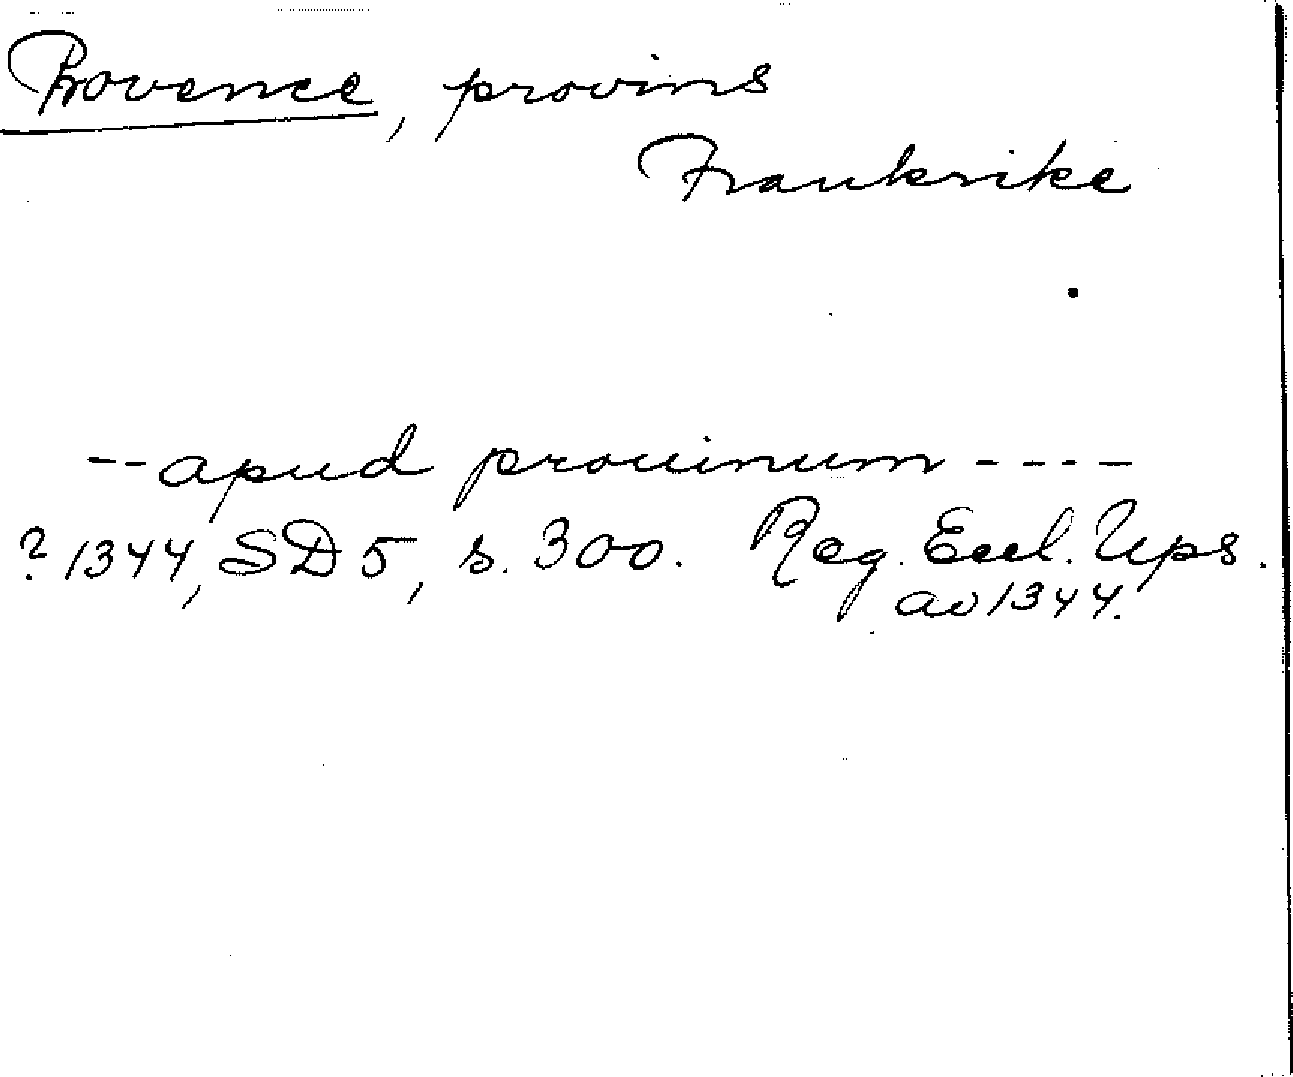 Provence, provins
Frankrike
-- apud prouinum ----
? 1344, SD 5, s. 300. Reg. Eccl. Ups.
av 1344.